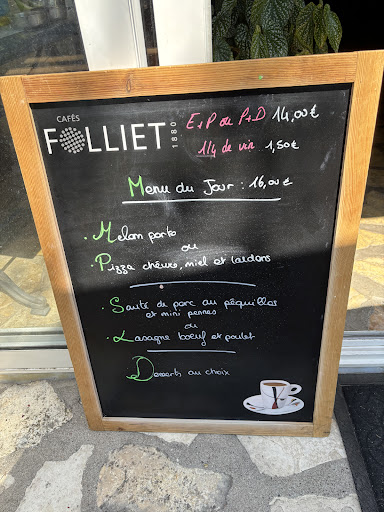 CAFÉS
FOLLIET
1880
E+P ou P+D 14,00€
1/4 de vin 1,50€
Menu du Jour : 16,00€
. Melon porto
ou
. Pizza chèvre, miel et lardons
. Sauté de porc au péquillos
et mini pennes
ou
. Lasagne boeuf et poulet
Desserts au choix